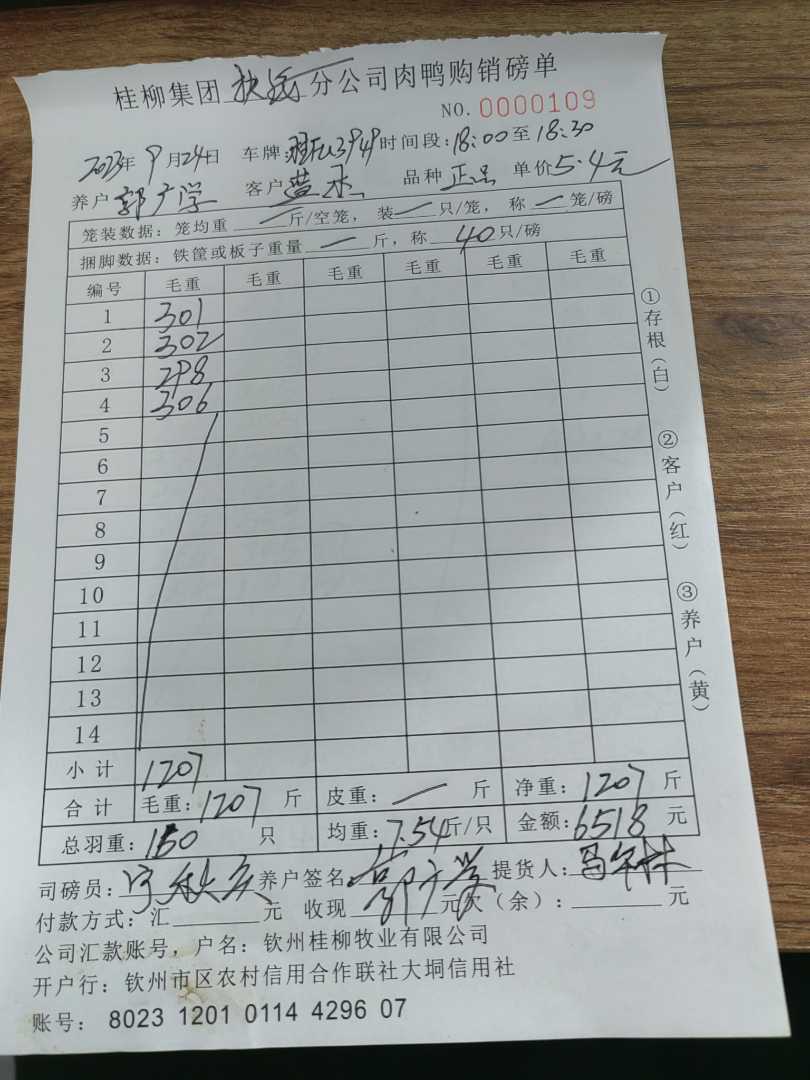 桂柳集团 分公司肉鸭购销磅单
NO. 0000109
2023年 9月24日 车牌: 3949 时间段:18:00至18:30
养户 郭广学 客户 品种 正品 单价5.4元
笼装数据:笼均重 一 斤/空笼,装 一 只/笼,称 一 笼/磅
捆脚数据:铁筐或板子重量 一 斤,称 40 只/磅
编号 毛重 毛重 毛重 毛重 毛重 毛重
1 301
2 302
3 298
4 306
5
6
7
8
9
10
11
12
13
14
小计 1207
合计 毛重:1207 斤 皮重: 一 斤 净重:1207 斤
总羽重:160 只 均重:7.54斤/只 金额:6518 元
司磅员: 养户签名: 郭广学 提货人:
付款方式:汇 元 收现 元欠(余): 元
公司汇款账号,户名:钦州桂柳牧业有限公司
开户行:钦州市区农村信用合作联社大垌信用社
账号: 8023 1201 0114 4296 07
①存根(白)
②客户(红)
③养户(黄)